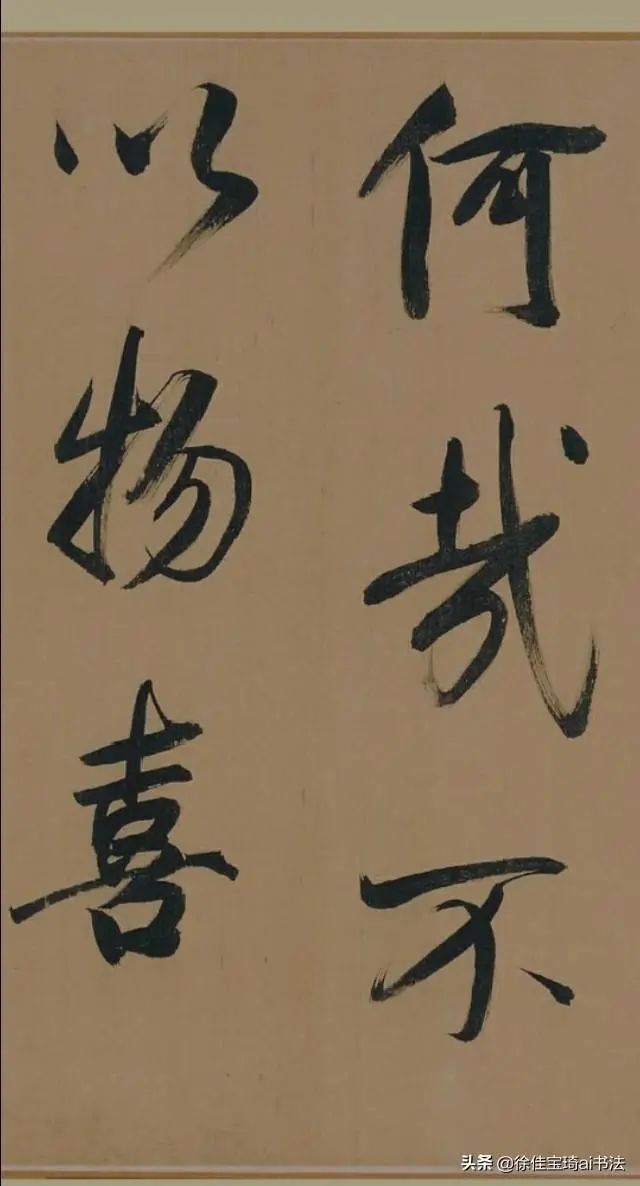 何哉不
以物喜
头条 @徐佳宝琦ai书法